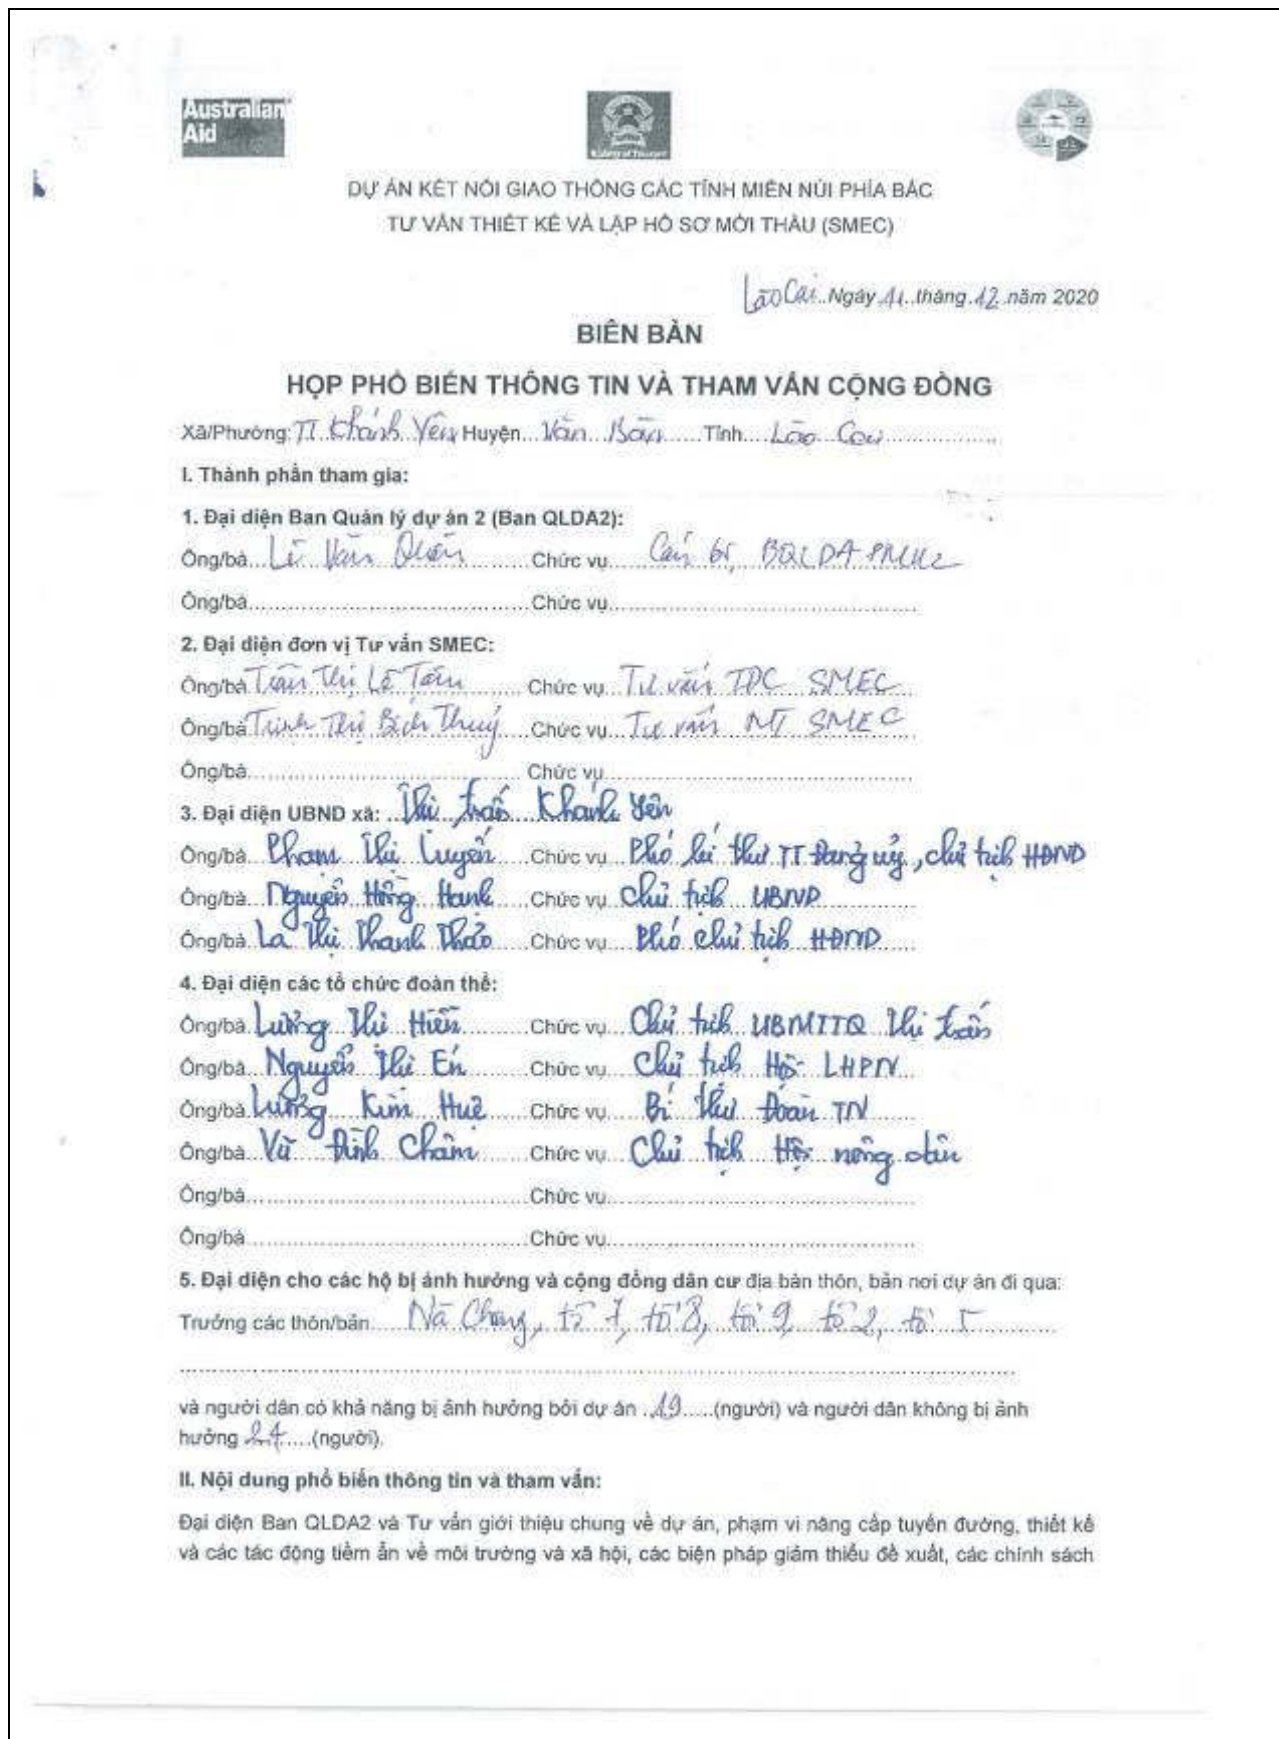 Australian
Aid
DỰ ÁN KẾT NỐI GIAO THÔNG CÁC TỈNH MIỀN NÚI PHÍA BẮC
TƯ VẤN THIẾT KẾ VÀ LẬP HỒ SƠ MỜI THẦU (SMEC)
Lào Cai..Ngày.11..tháng.12.năm 2020
BIÊN BẢN
HỌP PHỔ BIẾN THÔNG TIN VÀ THAM VẤN CỘNG ĐỒNG
Xã/Phường: TT Khánh Yên Huyện... Văn Bàn ..... Tỉnh.... Lào Cai
I. Thành phần tham gia:
1. Đại diện Ban Quản lý dự án 2 (Ban QLDA2):
Ông/bà... Lê Văn Chức vụ... Cán bộ BQLDA PMU2
Ông/bà........ Chức vụ........
2. Đại diện đơn vị Tư vấn SMEC:
Ông/bà Trần Thị Lê Tâm Chức vụ Tư vấn TDC SMEC
Ông/bà Trịnh Thị Bích Thuý Chức vụ Tư vấn MT SMEC
Ông/bà........ Chức vụ........
3. Đại diện UBND xã: Thị trấn Khánh Yên
Ông/bà Phạm Thị Luyến Chức vụ Phó bí thư TT Đảng uỷ, chủ tịch HĐND
Ông/bà Nguyễn Hồng Hạnh Chức vụ Chủ tịch UBND
Ông/bà La Thị Thanh Thảo Chức vụ Phó chủ tịch HĐND
4. Đại diện các tổ chức đoàn thể:
Ông/bà Lương Thị Hiền Chức vụ Chủ tịch UBMTTQ Thị trấn
Ông/bà Nguyễn Thị Én Chức vụ Chủ tịch Hội LHPN
Ông/bà Lương Kim Huệ Chức vụ Bí thư Đoàn TN
Ông/bà Vũ Đình Châm Chức vụ Chủ tịch Hội nông dân
Ông/bà........ Chức vụ........
Ông/bà........ Chức vụ........
5. Đại diện cho các hộ bị ảnh hưởng và cộng đồng dân cư địa bàn thôn, bản nơi dự án đi qua:
Trưởng các thôn/bản.... Nà , tổ 7, tổ 8, tổ 9, tổ 2, tổ 5
và người dân có khả năng bị ảnh hưởng bởi dự án ..19.....(người) và người dân không bị ảnh
hưởng 27....(người).
II. Nội dung phổ biến thông tin và tham vấn:
Đại diện Ban QLDA2 và Tư vấn giới thiệu chung về dự án, phạm vi nâng cấp tuyến đường, thiết kế
và các tác động tiềm ẩn về môi trường và xã hội, các biện pháp giảm thiểu đề xuất, các chính sách